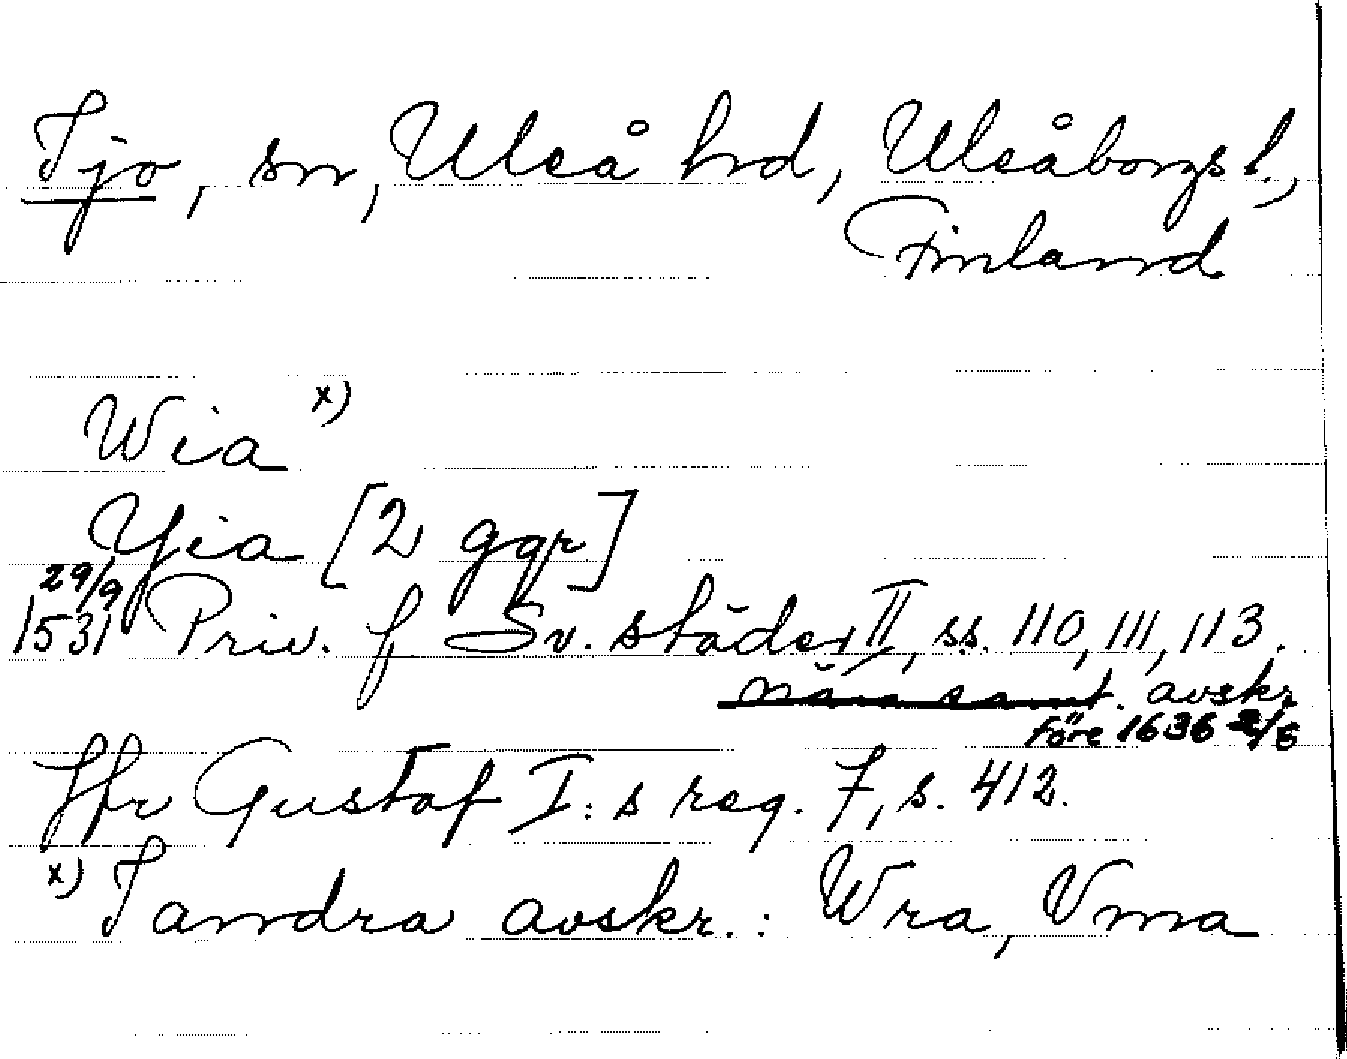 Ijo, sn, Uleå hd, Uleåborgs l.,
Finland
Wia x)
Yia [2 ggr]
29/9
1531 Priv. f Sv. städer II, ss. 110, 111, 113.
nära samt. avskr
före 1636 2/6
Jfr Gustaf I:s reg. 7, s. 412.
x) I andra avskr.: Wra, Vma